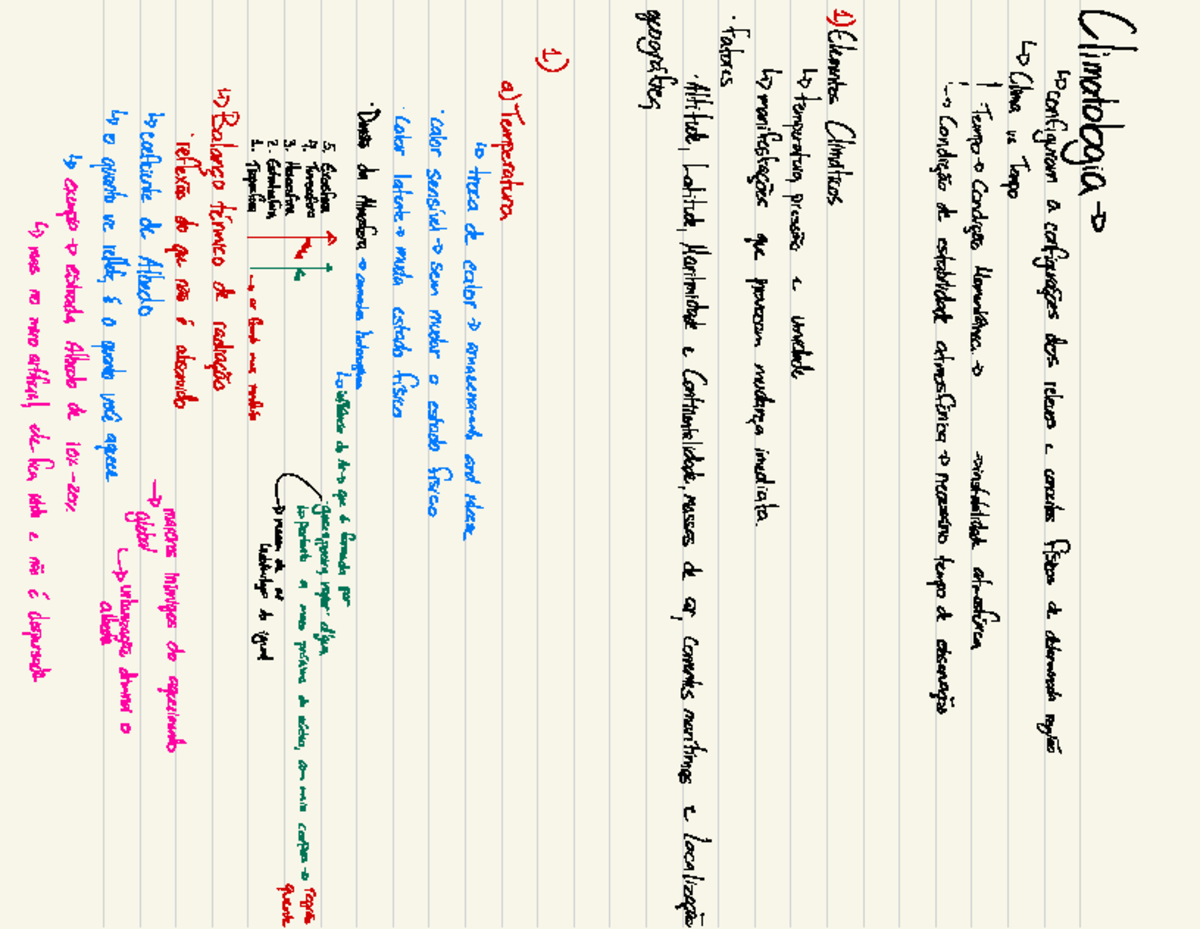 Climatologia →
↳ configuram a configurações dos relevos e conceitos físicos de determinada região
↳ Clima vs Tempo
! Tempo → Condição Momentânea → → instabilidade atmosférica
! → Condição de estabilidade atmosférica → necessário tempo de observação
1) Elementos Climáticos
↳ temperatura, pressão e umidade
↳ manifestações que provocam mudança imediata.
· Fatores
· Altitude, Latitude, Maritimidade e Continentalidade, massas de ar, correntes marítimas e localização
geográfica
1)
a) Temperatura
↳ troca de calor → armazenando and
· calor sensível → sem mudar o estado físico
· Calor latente → muda estado físico
· Divisão da Atmosfera → camadas heterogêneas
↳ influência do Ar → que é formada por
gases, poeira, vapor d'água
↳ portanto a mais próxima da, com mais corpos → região
quente
→ massa de ar
5. Exosfera
4. Termosfera
3. Mesosfera
2. Estratosfera
1. Troposfera
↳ Balanço térmico de radiação
· reflexão do que não é absorvido
↳ coeficiente de Albedo
↳ o quanto vc reflete, é o quanto você aquece
→ maiores inimigos do aquecimento
global
↳ urbanização diminui o
albedo
↳ exemplo → estrada Albedo de 10% - 20%
↳ mas no meio artificial, ele fica e não é dispersado